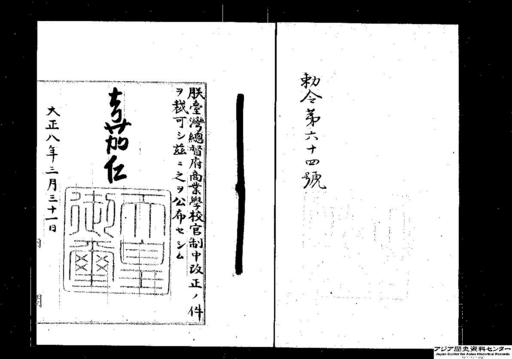 勅令第六十四號
朕臺灣總督府商業學校官制中改正ノ件
ヲ裁可シ茲ニ之ヲ公布セシム
嘉仁
天皇御璽
大正八年三月三十一日
アジア歴史資料センター
Japan Center for Asian Historical Records